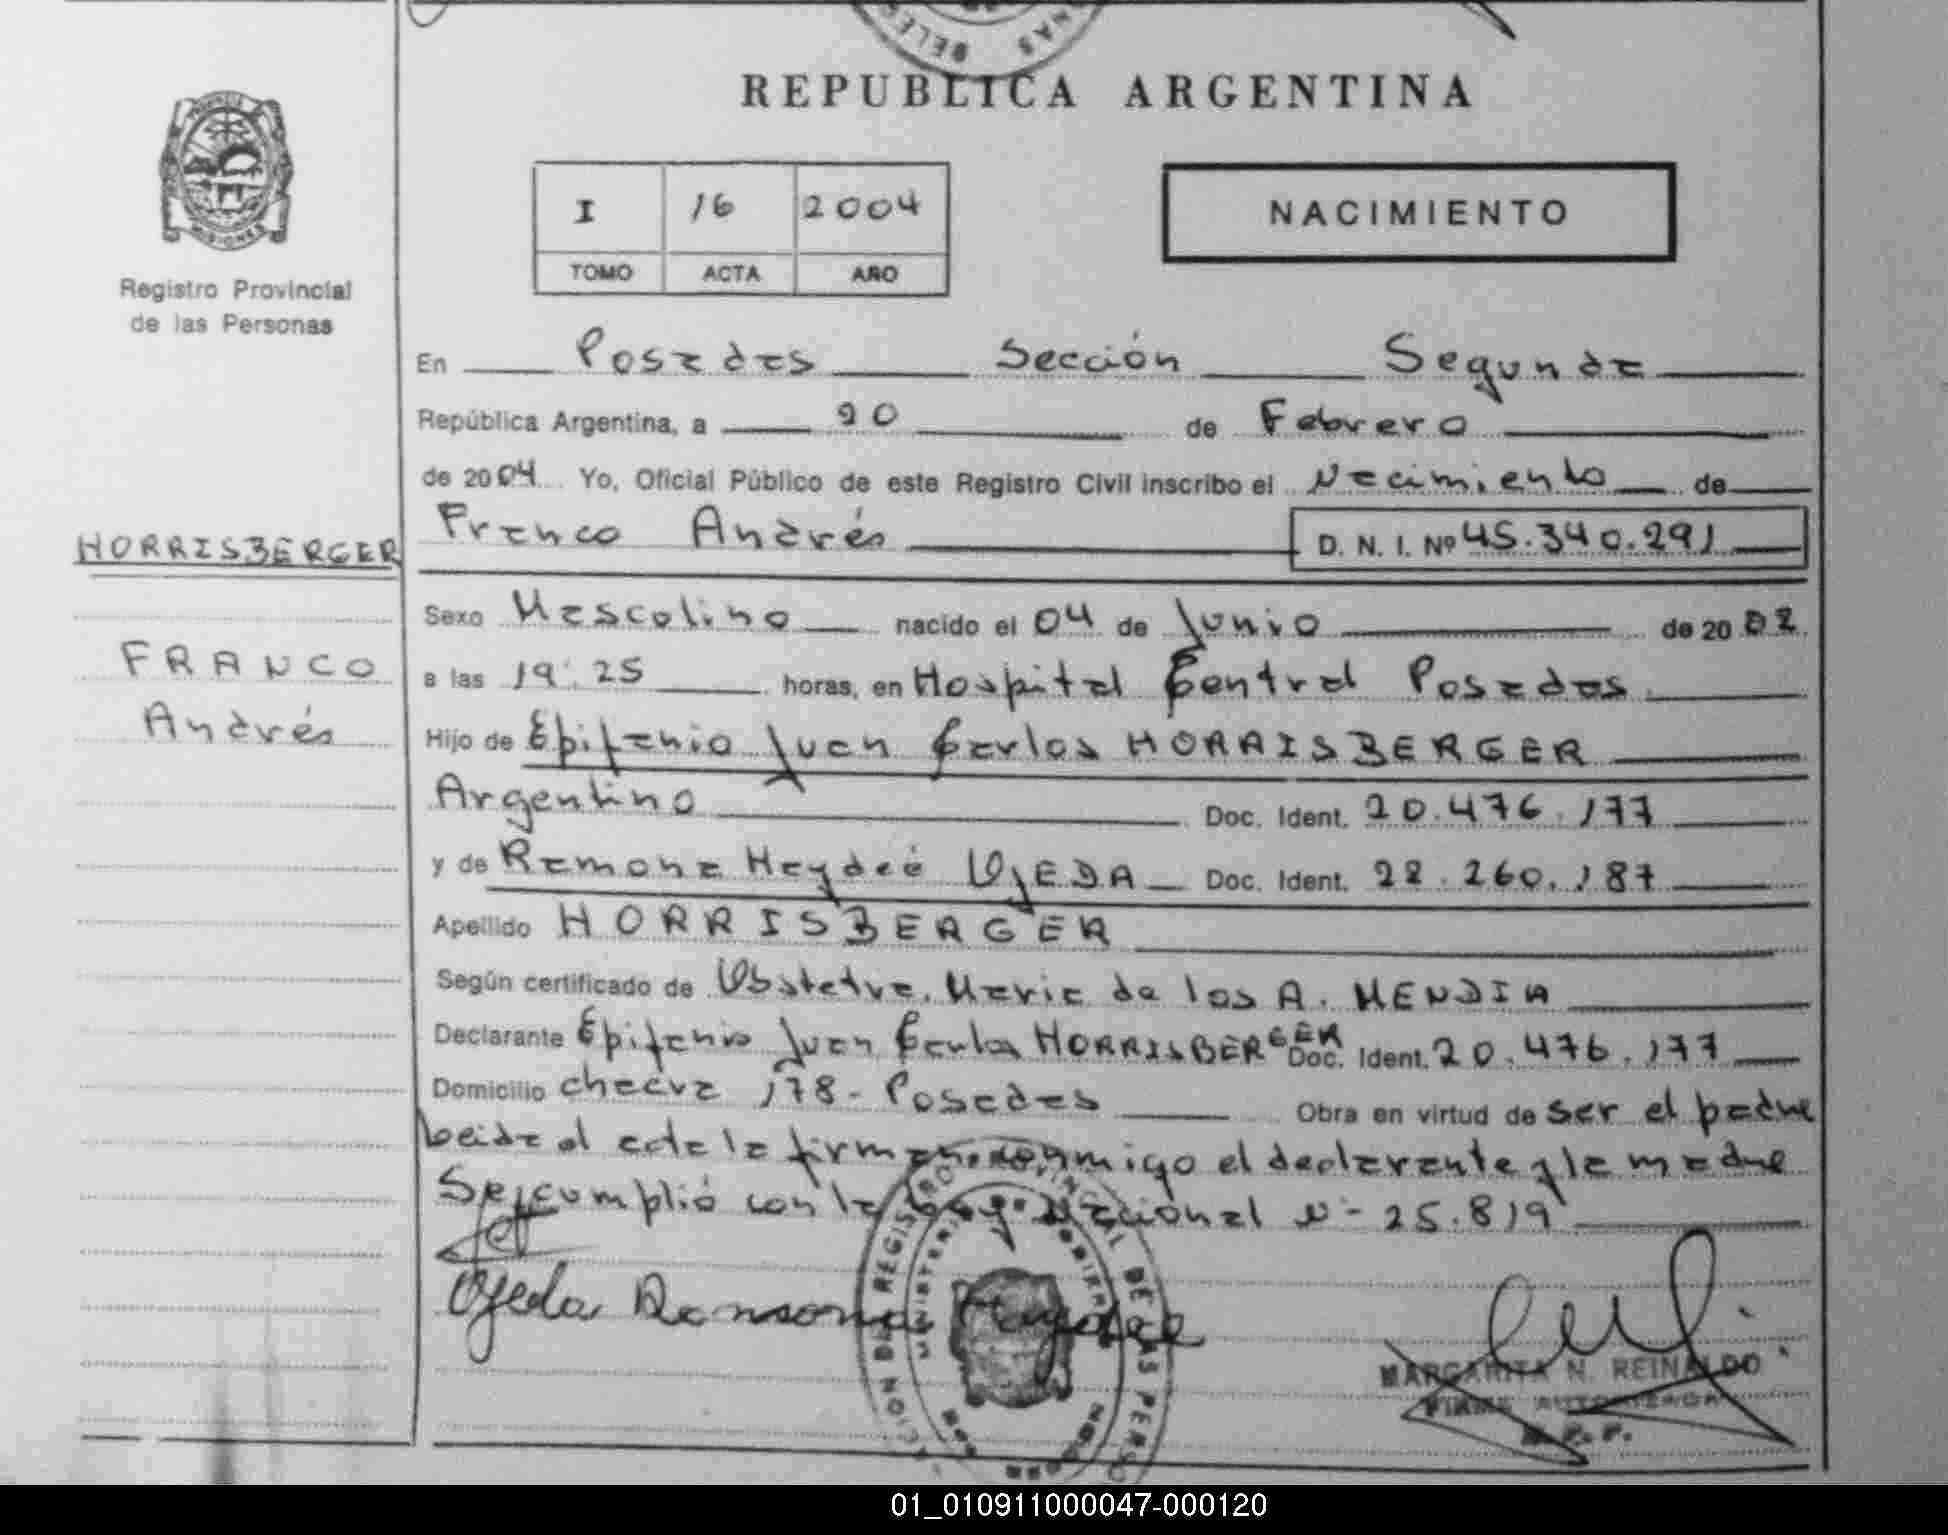 REPUBLICA ARGENTINA
MISIONES
Registro Provincial
de las Personas
I 16 2004
TOMO ACTA AÑO
NACIMIENTO
En Posadas Sección Segunda
República Argentina, a 20 de Febrero
de 2004 Yo, Oficial Público de este Registro Civil inscribo el Nacimiento de
HORRISBERGER
FRANCO
Andrés
Franco Andrés D. N. I. Nº 45.340.291
Sexo Mascolino nacido el 04 de Junio de 2002
a las 19:25 horas, en Hospital Central Posadas
Hijo de Epifanio Juan Carlos HORRISBERGER
Argentino Doc. Ident. 20.476.177
y de Ramona Haydeé OJEDA Doc. Ident. 22.260.187
Apellido HORRISBERGER
Según certificado de Obstetra. Maria de los A. MENDIA
Declarante Epifanio Juan Carlos HORRISBERGER Doc. Ident. 20.476.177
Domicilio chacra 178 - Posadas Obra en virtud de ser el padre
leida el acta la firman conmigo el declarante y la madre
Se cumplió con la Ley Nacional Nº 25.819
Ojeda Ramona Haydee
MARGARITA N. REINALDO
FIRMA AUTORIZADA
R. P. P.
01_010911000047-000120